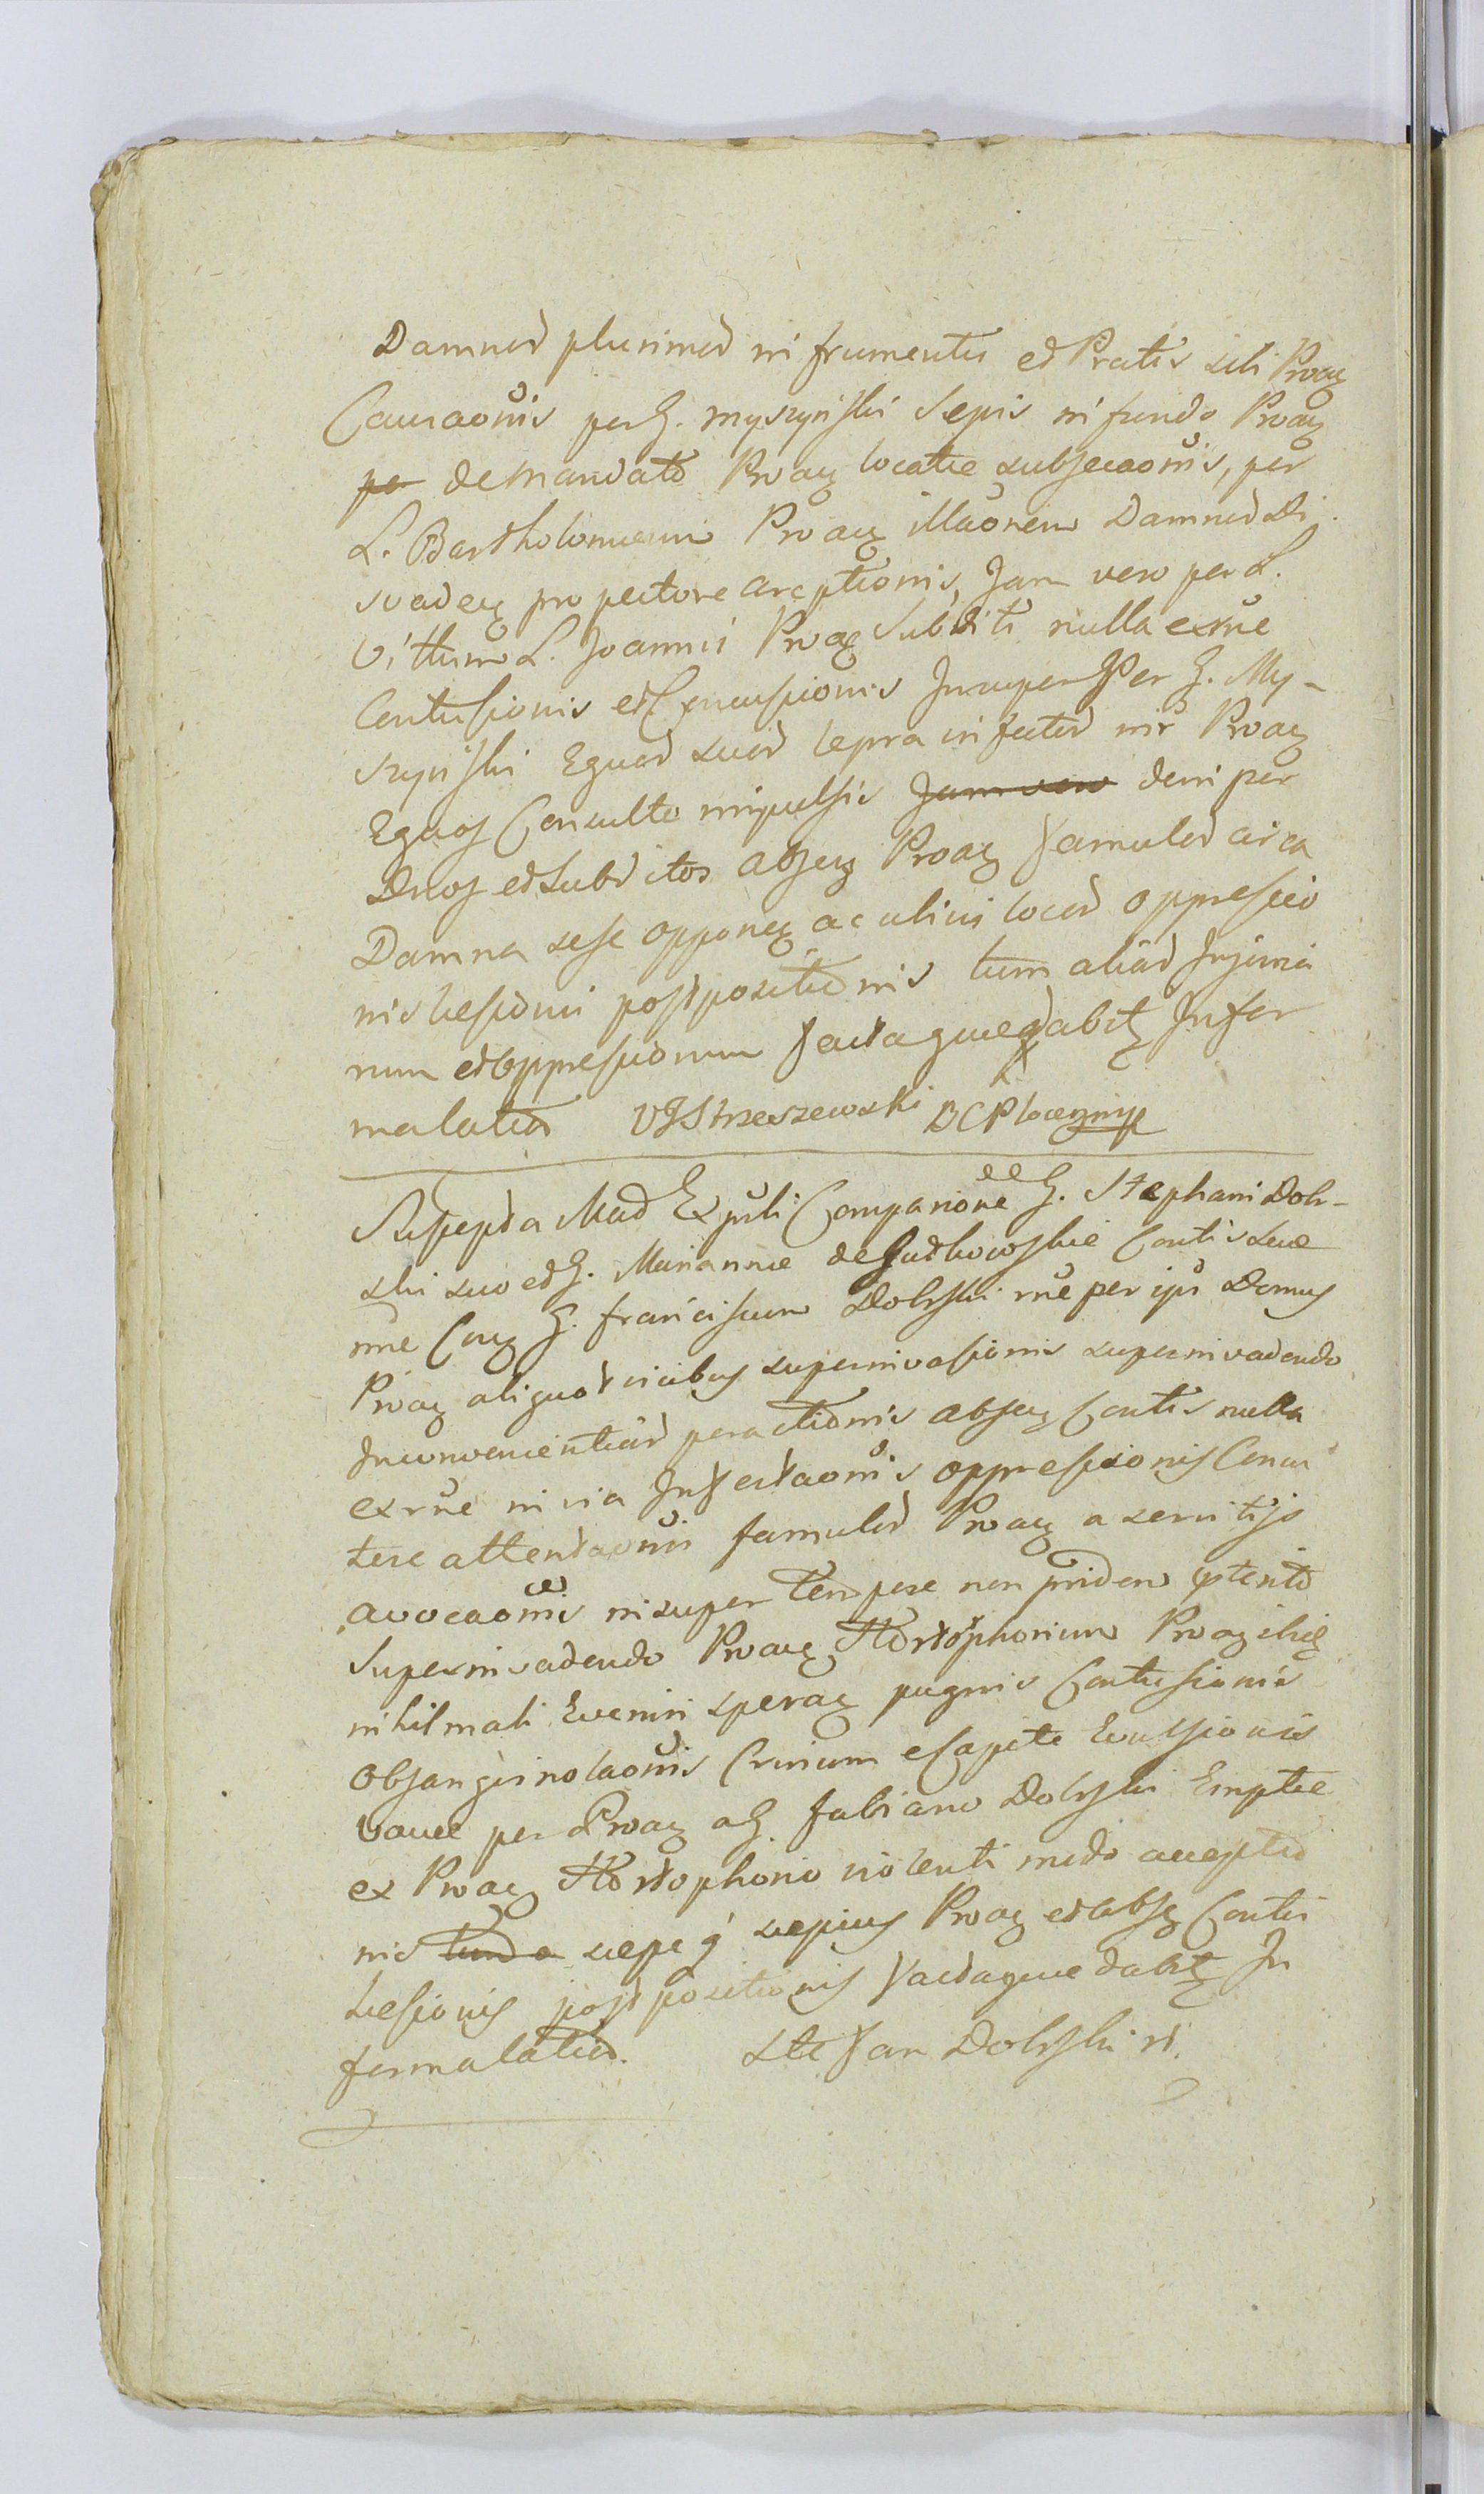 Damnod plurimod in frumentis ed Pratis sibi Proaȝ
Causaonis per G. Myszynski Sepis in fundo Proaȝ
pe de mandato Proaȝ locatæ subsecaonis, per
L. Bartholomeum Proaȝ illaonem Damnod Di
svadeȝ pro pectore arreptionis, Jam vero per L.
Vittum L. Joannis Proaȝ Subditi nulla exñe
Contusionis ed Concussionis Insuper Per G. My-
szynski Equod suod lepra infectod inr Proaȝ
Equos Consulto impulsis Jam vero dein per
Dnos ed Subditos abseȝ Proaȝ famulod circa
Damna sese opponeȝ ac alibi locod oppressio
nis læsioni postpositionis tum aliad Injuria
rum ed Oppressionum factaque dabitȝ Infor
malatio VJStrzeszewski BCP
Suscepta Mad Expuli Comparione G. Stephani Dob-
ski suo ed G. Mariannæ de Gutkowskie Contis suæ
nne Coaȝ G. Franciscum Dobski rñe per ips Domus
Proaȝ aliquot vicibus superinvasionis superinvadendo
Inconvenientiad peractionis abseȝ Contis nulla
exrñe in via Infestaonis oppressionis Concu
tere attentaonis famulod Proaȝ a servitijs
avocaonis insuper Tempore non pridem
Superinvadendo Proaȝ Hortophorium Proaȝ
nihil mali Eveniri speraȝ pugnis Contusionis
Obsanginolaonis Crinium e Capite Evulsionis
vaccæ per Proaȝ a G. Fabiano Dobski Emptæ
ex Proaȝ Hortophorio violenti modo acceptio
nis sæpe q sæpius Proaȝ ed abseȝ Contis
læsionis postpositionis factaque dabitȝ In
formalatio. Stefan Dobski